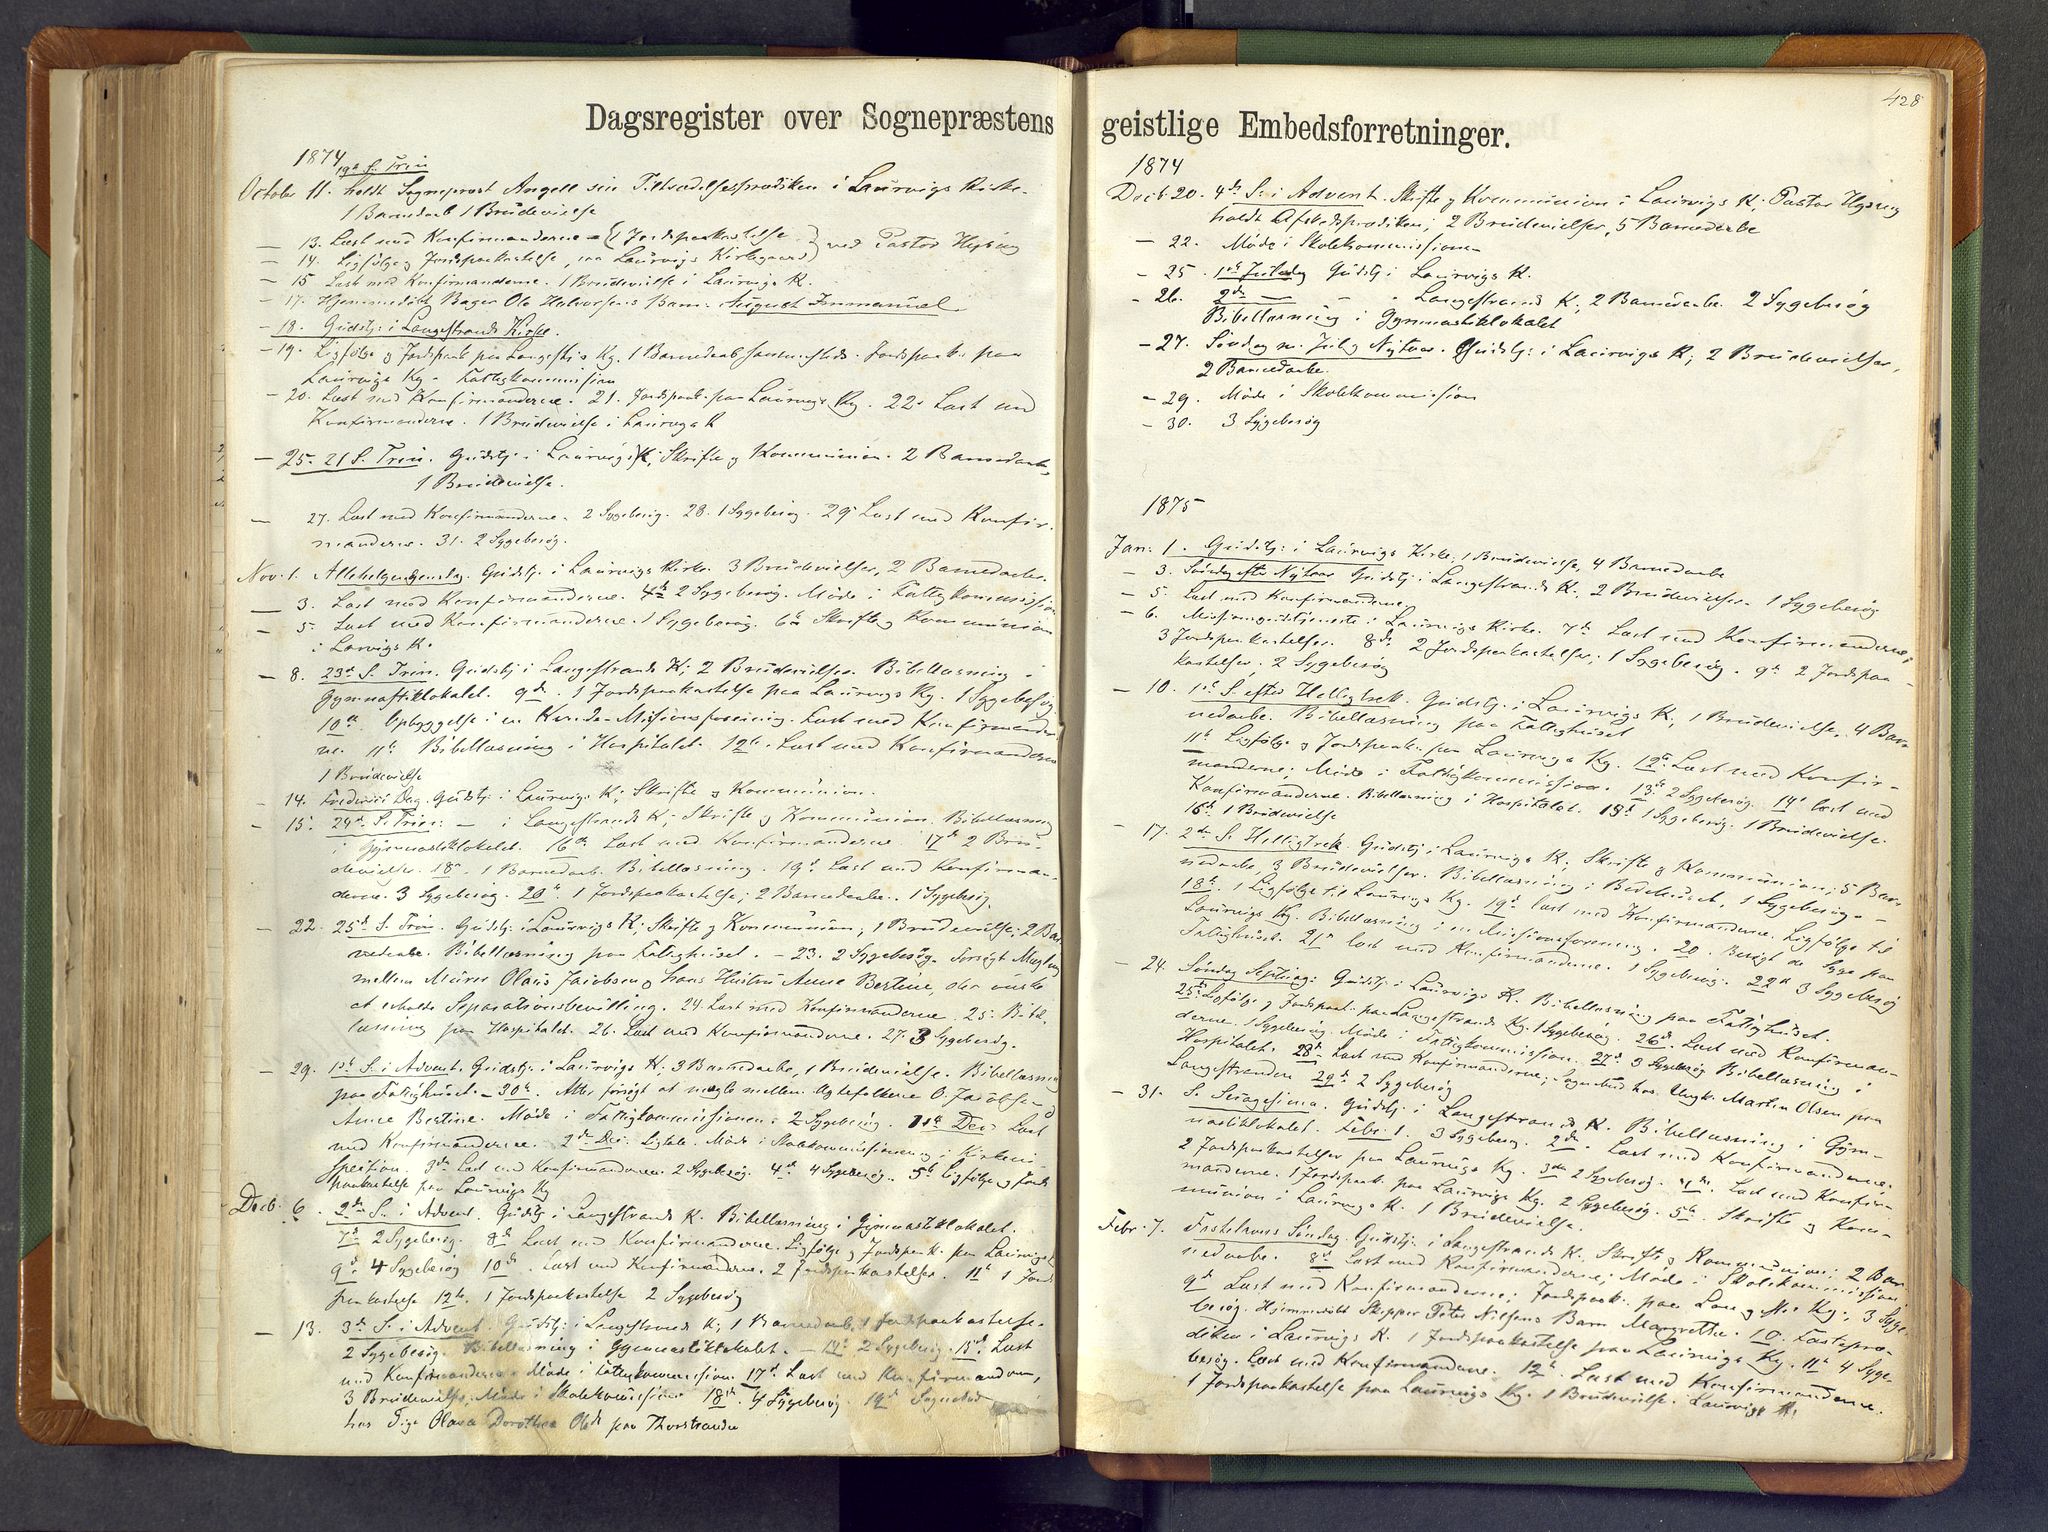 Dagsregister over Sognepræstens
1874
19de S. Trin
October 11. holdt Sognepræst Angell sin Tiltrædelsesprædiken i Laurvigs Kirke.
1 Barnedaab 1 Brudevielse
— 13. Læst med Konfirmanderne – 1 Jordspaakastelse
— 14. Ligfølge og Jordspaakastelse paa Laurvigs Kirkegaard } ved Pastor
— 15 Læst med Konfirmanderne. 1 Brudevielse i Laurvigs K.
— 17. Hjemmedøbt Bager Ole Halvorsens Barn August Immanuel
— 18. Gudstj: i Langestrands Kirke.
— 19. Ligfølge og Jordspaak: paa Langestr:s Kg. 1 Barnedaab sammesteds. Jordspaak: paa
Laurvigs Kg – Fattigkommission
— 20. Læst med Konfirmanderne. 21. Jordspaak: paa Laurvigs Kg. 22de Læst med
Konfirmanderne. 1 Brudevielse i Laurvigs K
— 25. 21 S. Trin. Gudstj: i Laurvigs K; Skrifte og Kommunion. 2 Barnedaabe,
1 Brudevielse.
— 27. Læst med Konfirmanderne. 2 Sygebesøg. 28. 1 Sygebesøg. 29 Læst med Konfir-
manderne. 31. 2 Sygebesøg.
Nov. 1. Allehelgensdag. Gudstj: i Laurvigs Kirke. 3 Brudevielser, 2 Barnedaabe.
— 3. Læst med Konfirmanderne. 4de 2 Sygebesøg. Møde i Fattigkommission
— 5. Læst med Konfirmanderne. 1 Sygebesøg. 6te Skrifte og Kommunion
i Larvigs K.
— 8. 23de S. Trin. Gudstj: i Langestrands K; 2 Brudevielser. Bibellæsning i
Gymnastiklokalet. 9de. 1 Jordspaakastelse paa Laurvigs Kg. 1 Sygebesøg.
10de. Opbyggelse i en Kvinde-Missionsforening. Læst med Konfirmander-
ne. 11te Bibellæsning i Hospitalet. 12te. Læst med Konfirmanderne
1 Brudevielse
— 14. Gudstj: i Laurvigs K; Skrifte og Kommunion.
— 15. 24de S. Trin: — i Langestrands K; Skrifte og Kommunion. Bibellæsning
i Gymnastiklokalet. 16de Læst med Konfirmanderne. 17de 2 Bru-
devielser. 18de. 1 Barnedaab. Bibellæsning. 19de Læst med Konfirman-
derne. 3 Sygebesøg. 20de. 1 Jordspaakastelse; 2 Barnedaabe. 1 Sygebesøg.
— 22. 25de S. Trin. Gudstj: i Laurvigs K; Skrifte og Kommunion; 1 Brudevielse; 2 Bar-
nedaabe. Bibellæsning paa Fattighuset. – 23. 2 Sygebesøg. Forsøgt Mægling
mellem Murer Olaus Jacobsen og hans Hustru Anne Bertine, der ønske
at erholde Separationsbevilling. 24. Læst med Konfirmanderne. 25. Bibel-
læsning paa Hospitalet. 26. Læst med Konfirmanderne. 27. 3 Sygebesøg.
— 29. 1ste S. i Advent. Gudstj: i Laurvigs K; 3 Barnedaabe, 1 Brudevielse. Bibellæsning
paa Fattighuset. – 30te. Atter forsøgt at mægle mellem Ægtefolkene O. Jacobsen og
Anne Bertine. Møde i Fattigkommissionen. 2 Sygebesøg. 1ste Dec. Læst
med Konfirmanderne. 2de Dec. Møde i Skolekommissionen og i Kirkein-
spektion. 3de Læst med Konfirmanderne 2 Sygebesøg. 4de 4 Sygebesøg. 5te Ligfølge og Jords-
paakastelse paa Laurvigs Kg
Decb. 6. 2den S. i Advent. Gudstj: i Langestrands K. Bibellæsning i Gymnastiklokalet.
7de 2 Sygebesøg. 8de Læst med Konfirmanderne. Ligfølge og Jordspaak: paa Laurvigs K
9de 4 Sygebesøg 10de. Læst med Konfirmanderne. 2 Jordspaakastelser. 11te 1 Jords-
paakastelse 12te. 1 Jordspaakastelse 2 Sygebesøg
— 13. 3de S. i Advent. Gudstj: i Langestrands K; 1 Barnedaab, 1 Jordspaakastelse.
2 Sygebesøg. Bibellæsning i Gymnastiklokalet. – 14de 2 Sygebesøg. 15de. Læst
med Konfirmanderne. Møde i Fattigkommission 17de Læst med Konfirmanderne,
3 Brudevielser, Møde i Skolekommission 18de. 4 Sygebesøg. 19de Sognebud
hos Pige Olava Dorothea Olsd. paa Thorstranden
geistlige Embedsforretninger.
428
1874
Decb. 20. 4de S. i Advent. Skrifte og Kommunion i Laurvigs K; Pastor
holdt Afskedsprædiken; 2 Brudevielser, 5 Barnedaabe
— 22. Møde i Skolekommissionen
— 25. 1ste Juledag Gudstj: i Laurvigs K.
— 26. 2den — – – Langestrands K; 2 Barnedaabe. 2 Sygebesøg
Bibellæsning i Gymnastiklokalet
— 27. Søndag m. Jul og Nytaar. Gudstj: i Laurvigs K; 2 Brudevielser,
2 Barnedaabe.
— 29. Møde i Skolekommission
— 30. 3 Sygebesøg
1875
Jan: 1. Gudstj: i Laurvigs Kirke; 1 Brudevielse, 4 Barnedaabe
— 3. Søndag efter Nytaar Gudstj: i Langestrands K. 2 Brudevielser. 1 Sygebesøg
— 5. Læst med Konfirmanderne.
— 6. Missionsgudstjeneste i Laurvigs Kirke. 7de Læst med Konfirmanderne;
3 Jordspaakastelser. 8de. 2 Jordspaakastelser; 1 Sygebesøg. 9de 2 Jordspaa-
kastelser. 2 Sygebesøg
— 10. 1ste S. efter Helligtrek. Gudstj: i Laurvigs K; 1 Brudevielse, 4 Bar-
nedaabe. Bibellæsning paa Fattighuset
11te Ligfølge og Jordspaak: paa Laurvigs Kg. 12te Læst med Konfir-
manderne; Møde i Fattigkommission. 13de 2 Sygebesøg. 14de læst med
Konfirmanderne. Bibellæsning i Hospitalet. 15de 1 Sygebesøg. 1 Brudevielse.
16de 1 Brudevielse
— 17. 2den S. Helligtrek. Gudstj: i Laurvigs K; Skrifte og Kommunion; 5 Bar-
nedaabe, 3 Brudevielser. Bibellæsning i Bedehuset, 1 Sygebesøg –
18de. 1 Ligfølge til Laurvigs Kg. 19de læst med Konfirmanderne. Ligfølge til
Laurvigs Kg. Bibellæsning i en Missionsforening. 20. Besøgt de Syge paa
Fattighuset. 21de læst med Konfirmanderne. 1 Sygebesøg. 22de 3 Sygebesøg
— 24. Søndag Septuag: Gudstj: i Laurvigs K. Bibellæsning paa Fattighuset.
25de Ligfølge og Jordspaak: paa Langestrands Kg. 1 Sygebesøg. 26de. Læst med Konfirman-
derne. 1 Sygebesøg. Møde i Fattigkommission. 27de 3 Sygebesøg Bibellæsning i
Hospitalet. 28de Læst med Konfirmanderne; Sognebud hos Ungk. Martin Olsen paa
Langestranden 29de 2 Sygebesøg
— 31. S. Sexagesima. Gudstj: i Langestrands K. Bibellæsning i Gym-
nastiklokalet. Febr. 1. 3 Sygebesøg. 2de Læst med Konfirmanderne.
2 Jordspaakastelser paa Laurvigs Kg. 3de 2 Sygebesøg. 4de. Læst med Konfir-
manderne. 1 Jordspaak: paa Laurvigs Kg. 2 Sygebesøg. 5te. Skrifte og Kom-
munion i Laurvigs K. 1 Brudevielse.
Febr. 7. Fastelavns Søndag. Gudstj: i Langestrands K. Skrifte og Kommunion; 2 Bar-
nedaabe. 8de Læst med Konfirmanderne; Møde i Skolekommission.
9de Læst med Konfirmanderne; Jordspaak: paa Kg; 3 Syge-
besøg. Hjemmedøbt Skipper Peter Nilsens Barn Margrethe. 10. Fastepræ-
diken i Laurvigs K. 1 Jordspaakastelse paa Laurvigs Kg. 11te 4 Syge-
besøg. læst med Konfirmanderne. 12te. Læst med Konfirmanderne.
1 Jordspaakastelse paa Laurvigs Kg. 1 Brudevielse. i Laurvigs K.